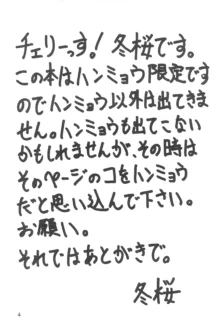 チェリーっす!冬桜です。
この本はハンミョウ限定です
のでハンミョウ以外は出てきま
せん。ハンミョウも出てこない
かもしれませんが、その時は
そのページのコをハンミョウ
だと思い込んで下さい。
お願い。
それではあとがきで。
冬桜
4